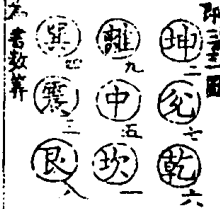 圖
坤二
兌七
乾六
離九
中五
坎一
巽四
震三
艮八
書數算